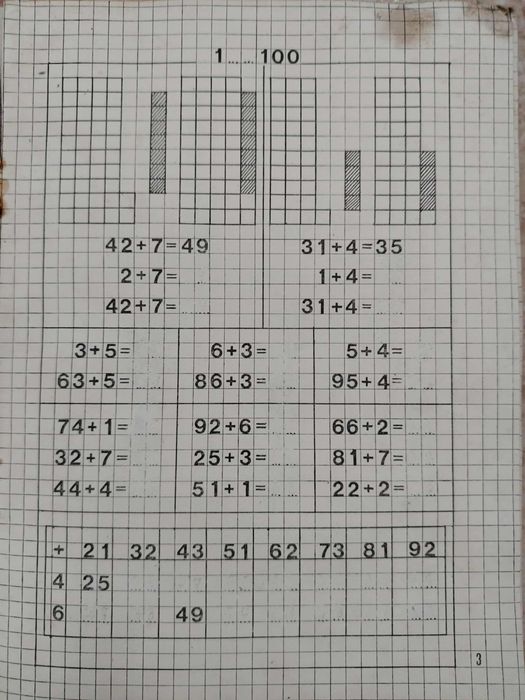 1 ...... 100
42+7=49 31+4=35
2+7= ...... 1+4= ......
42+7= ...... 31+4= ......
3+5= ...... 6+3= ...... 5+4= ......
63+5= ...... 86+3= ...... 95+4= ......
74+1= ...... 92+6= ...... 66+2= ......
32+7= ...... 25+3= ...... 81+7= ......
44+4= ...... 51+1= ...... 22+2= ......
+ 21 32 43 51 62 73 81 92
4 25 ...... ...... ...... ...... ...... ...... ......
6 ...... ...... 49 ...... ...... ...... ...... ......
3